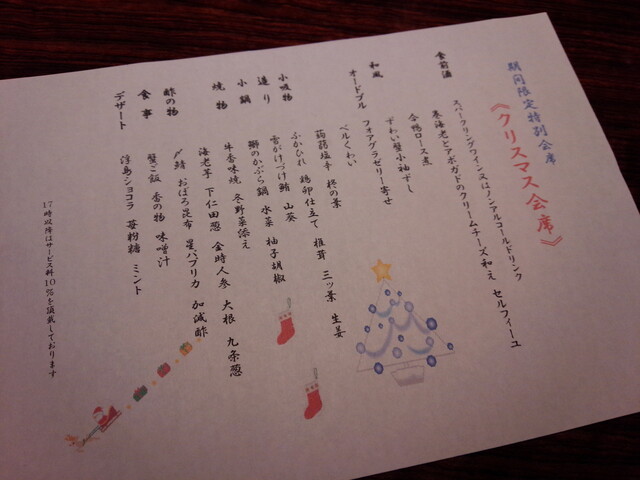 期間限定特別会席
《クリスマス会席》
食前酒 スパークリングワイン又はノンアルコールドリンク
和風オードブル 巻海老とアボガドのクリームチーズ和え セルフィーユ
合鴨ロース煮
ずわい蟹小袖すし
フォアグラゼリー寄せ
べルくわい
小吸物 蒟蒻塩辛 柊の葉
ふかひれ 鶏卵仕立て 椎茸 三ッ葉 生姜
造り 雪がけづけ鮪 山葵
小鍋 鰤のかぶら鍋 水菜 柚子胡椒
焼物 牛香味焼 冬野菜添え
海老芋 下仁田葱 金時人参 大根 九条葱
酢の物 〆鯖 おぼろ昆布 星パプリカ 加減酢
食事 蟹ご飯 香の物 味噌汁
デザート 浮島ショコラ 苺粉糖 ミント
17時以降はサービス料10%を頂戴しております